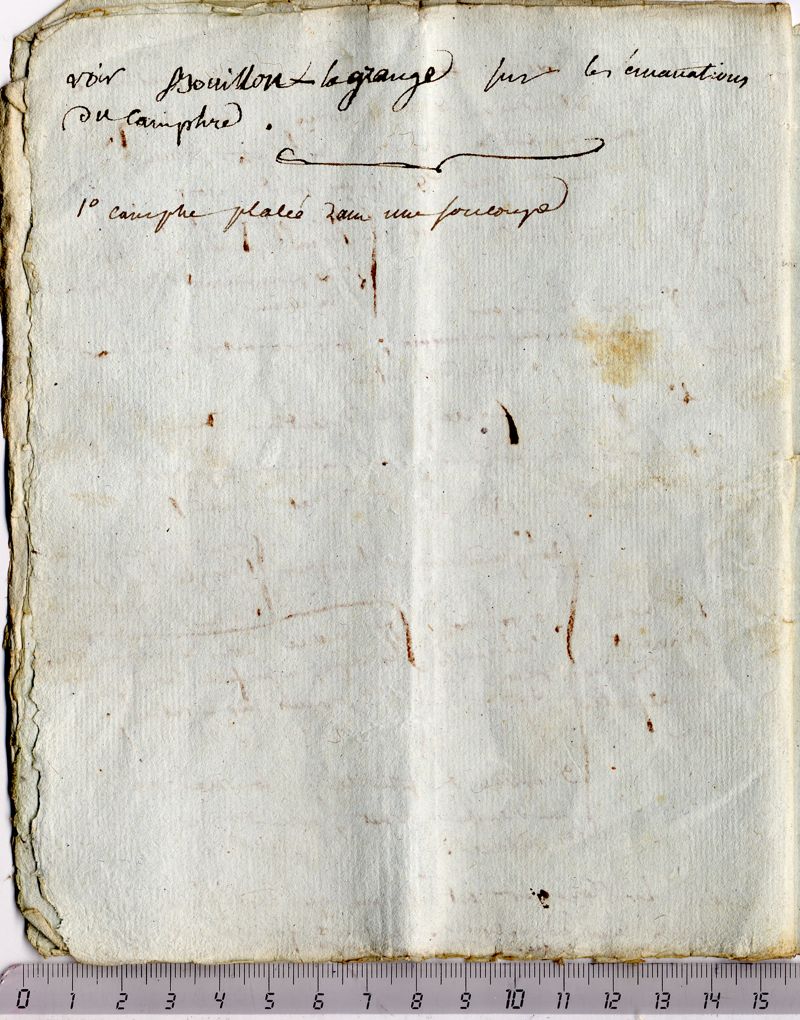 voir Bouillon Lagrange sur les émanations
du Camphre.
1º camphe placé dans une soucoupe
0 1 2 3 4 5 6 7 8 9 10 11 12 13 14 15